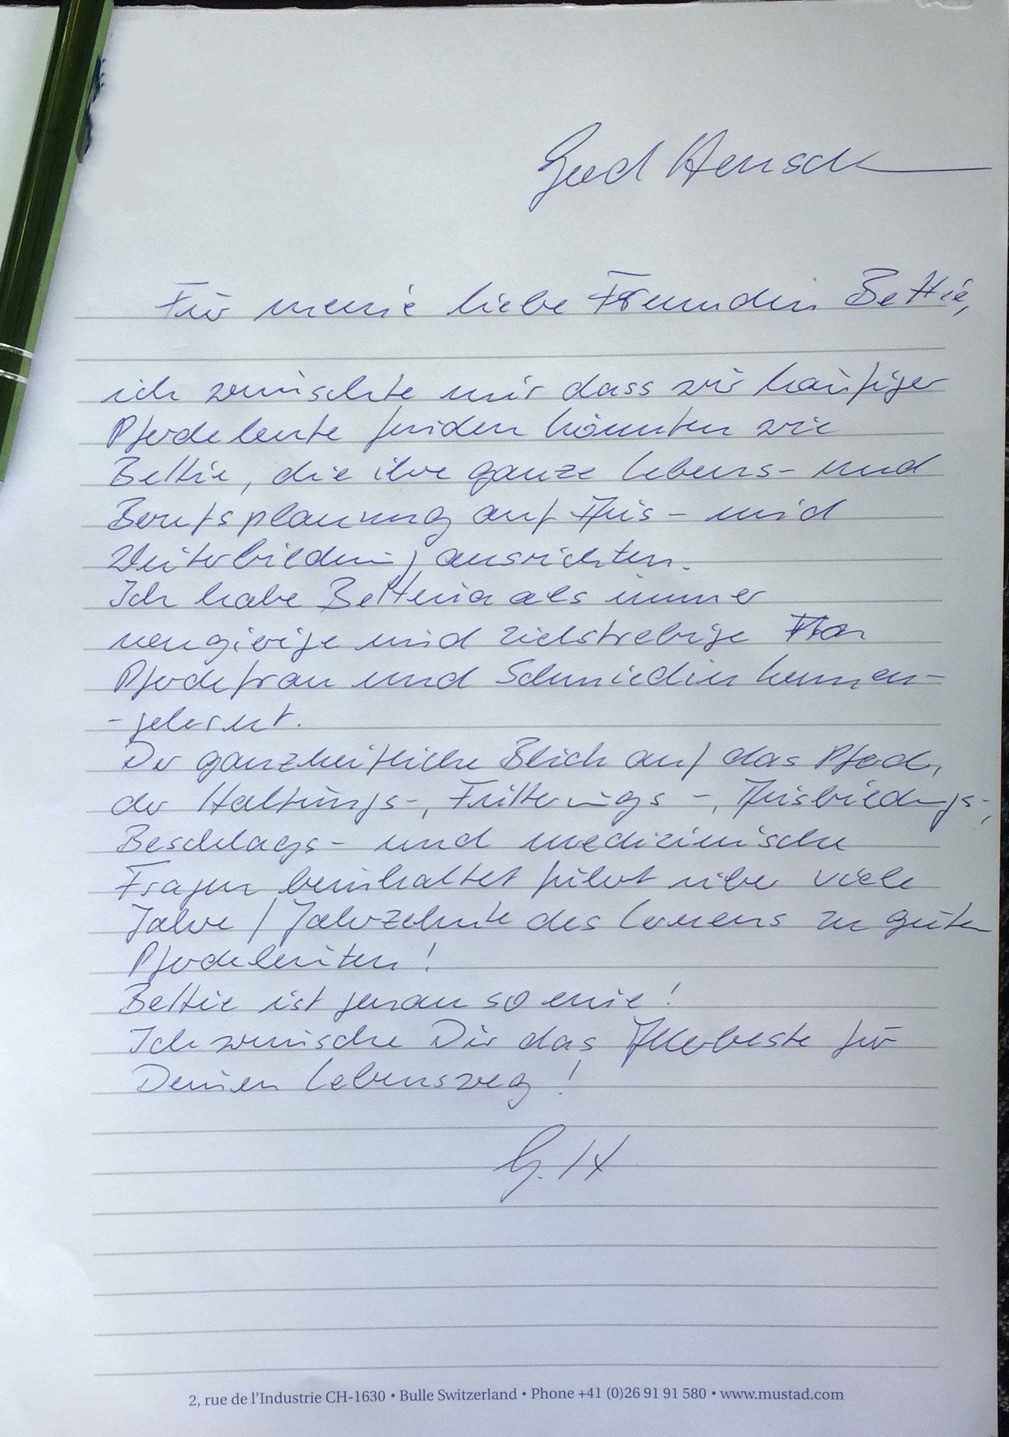 Gerd Heusch
Für meine liebe Freundin Bettie,
ich wünschte mir dass wir häufiger
Pferdeleute finden könnten wie
Bettie, die ihre ganze Lebens- und
Berufsplanung auf Aus- und
Weiterbildung ausrichten.
Ich habe Bettina als immer
neugierige und zielstrebige
Pferdefrau und Schmiedin kennen-
-gelernt.
Der ganzheitliche Blick auf das Pferd,
der Haltungs-, Fütterungs-, Ausbildungs-,
Beschlags- und medizinische
Fragen beinhaltet führt über viele
Jahre / Jahrzehnte des Lernens zu guten
Pferdeleuten!
Bettie ist genau so eine!
Ich wünsche Dir das Allerbeste für
Deinen Lebensweg!
G. H
2, rue de l'Industrie CH-1630 • Bulle Switzerland • Phone +41 (0)26 91 91 580 • www.mustad.com